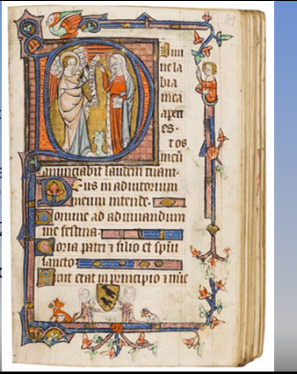 Dñi
ne la
bia
mea
aperi
es.
t os
meū
annunciabit laudem tuam.
Deus in adiutorium
meum intende.
Domine ad adiuuandum
me festina.
Gloria patri ⁊ filio et spūi
sancto.
Sicut erat in principio ⁊ nūc